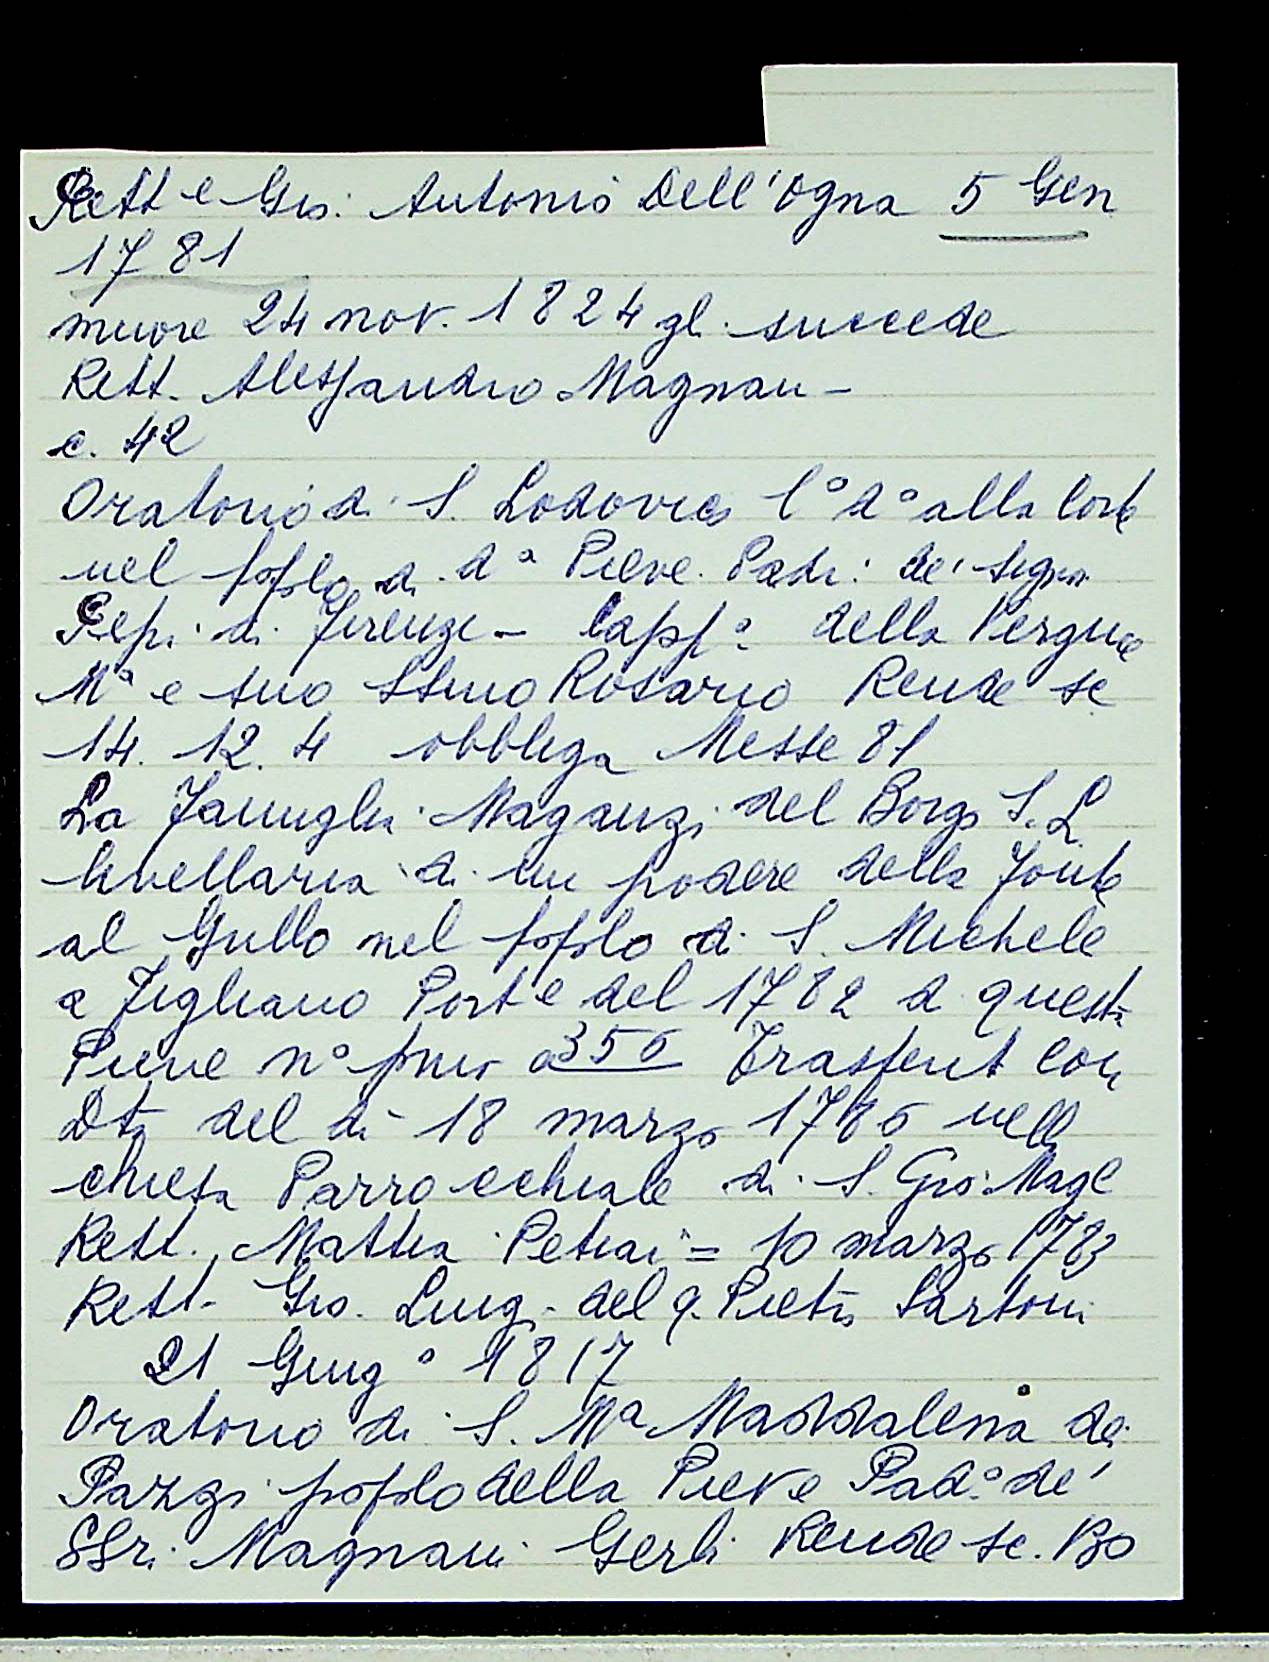 Rett e Gio: Antonio Dell'Ogna 5 Gen
1781
muore 24 nov. 1824 gli succede
Rett. Alessandro Magnani
c. 42
Oratorio di S. Lodovico l° d° alla Corte
nel popolo di da Pieve. Padri: de' Signri
Pepi di Firenze - Capp.a della Vergine
Ma e suo SSmo Rosario Rende sc
14. 12. 4 obbliga Messe 81
La Famiglia Maganzi del Borgo S. L
livellaria di un podere della Fonte
al Grillo nel popolo di S. Michele
a Figliano Port e del 1782 a questa
Pieve n° primo a 356 Trasferit con
Dto del di 18 marzo 1786 nella
chiesa Parrocchiale di S. Gio: Magg
Rett. Mattia Petiai = 10 marzo 1783
Rett. Gio. Luigi del q. Pietro Sartoni
21 Giug° 1817
Oratorio di S. Ma Maddalena dei
Pazzi popolo della Pieve Pad.° de'
SSri. Magnani Gerli Rende sc. 130